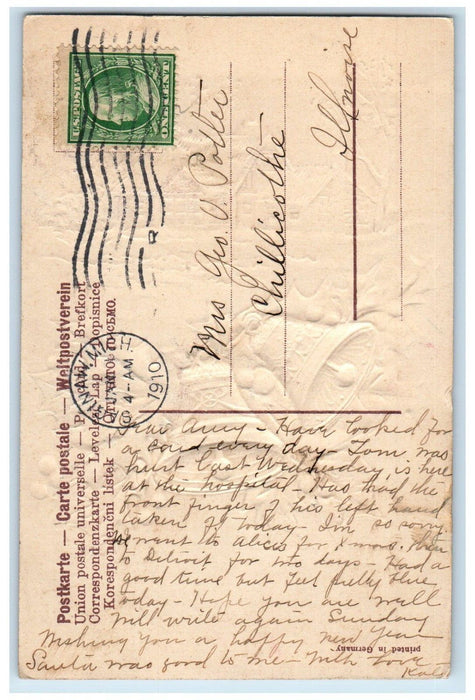 U.S. POSTAGE
ONE CENT
Postkarte — Carte postale — Weltpostverein
Union postale universelle —
Correspondenzkarte — Levelező-Lap
Korespondenční lístek —
MICH.
4-AM
1910
Mrs Geo. V. Potter
Chillicothe
Illinois
Dear Amy - Have looked for
a card every day - Tom was
hurt last Wednesday, is here
at the hospital - Has had the
front finger of his left hand
taken off today - I'm so sorry.
We went to Alices for Xmas. then
to Detroit for two days - Had a
good time but feel pretty blue
today - Hope you are well
Will write again Sunday
Wishing you a happy new Year
Santa was good to me - With love
Kate
printed in Germany